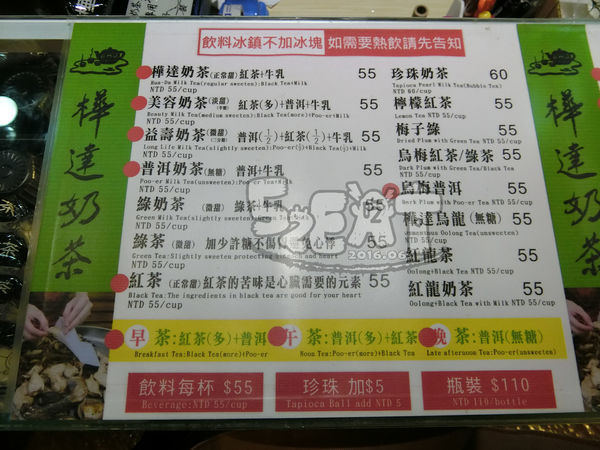 飲料冰鎮不加冰塊 如需要熱飲請先告知
樺達奶茶
樺達奶茶
樺達奶茶(正常甜)紅茶+牛乳 55
Hua-Da Milk Tea(regular sweeter):Black Tea+Milk
NTD 55/cup
美容奶茶(淡甜) 紅茶(多)+普洱+牛乳 55
Beauty Milk Tea(medium sweeten):Black Tea(more)+Poo-er+Milk
NTD 55/cup
益壽奶茶(微甜) 普洱(½)+紅茶(½)+牛乳 55
Long Life Milk Tea(slightly sweeten):Poo-er(½)+Black Tea(½)+Milk
NTD 55/cup
普洱奶茶(無糖) 普洱+牛乳 55
Poo-er Milk Tea(unsweeten):Poo-er Tea+Milk
NTD 55/cup
綠奶茶(微甜) 綠茶+牛乳 55
Green Milk Tea(slightly sweeten):Green Tea+Milk
NTD 55/cup
綠茶 (微甜) 加少許糖不傷胃避免心悸 55
Green Tea:Slightly sweeten protecting stomach and heart
NTD 55/cup
紅茶(正常甜)紅茶的苦味是心臟需要的元素 55
Black Tea:The ingredients in black tea are good for your heart
NTD 55/cup
珍珠奶茶 60
Tapioca Pearl Milk Tea(Bubble Tea)
NTD 60/cup
檸檬紅茶 55
Lemon Tea NTD 55/cup
梅子綠 55
Dried Plum with Green Tea NTD 55/cup
烏梅紅茶/綠茶 55
Dark Plum with Green Tea/Black Tea
NTD 55/cup
烏梅普洱 55
Dark Plum with Poo-er Tea NTD 55/cup
樺達烏龍(無糖) 55
Tea(unsweeten)
NTD 55/cup
紅龍茶 55
Oolong+Black Tea NTD 55/cup
紅龍奶茶 55
Oolong+Black Tea with Milk NTD 55/cup
2016.06
早 茶:紅茶(多)+普洱 午 茶:普洱(多)+紅茶 晚 茶:普洱(無糖)
Breakfast Tea:Black Tea(more)+Poo-er Noon Tea:Poo-er(more)+Black Tea Late afternoon Tea:Poo-er(unsweeten)
飲料每杯 $55 珍珠 加$5 瓶裝 $110
Beverage:NTD 55/cup Tapioca Ball add NTD 5 NTD 110/bottle